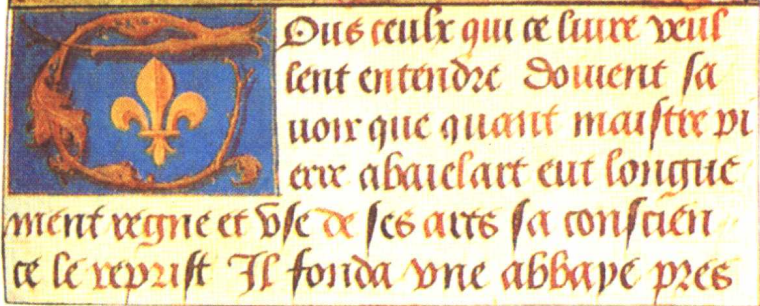 Tous ceulx qui ce livre veul
lent entendre doivent sa
voir que quant maistre pi
erre abaielart eut longue
ment regne et use de ses ars sa conscien
ce le reprist Il fonda une abbaye pres